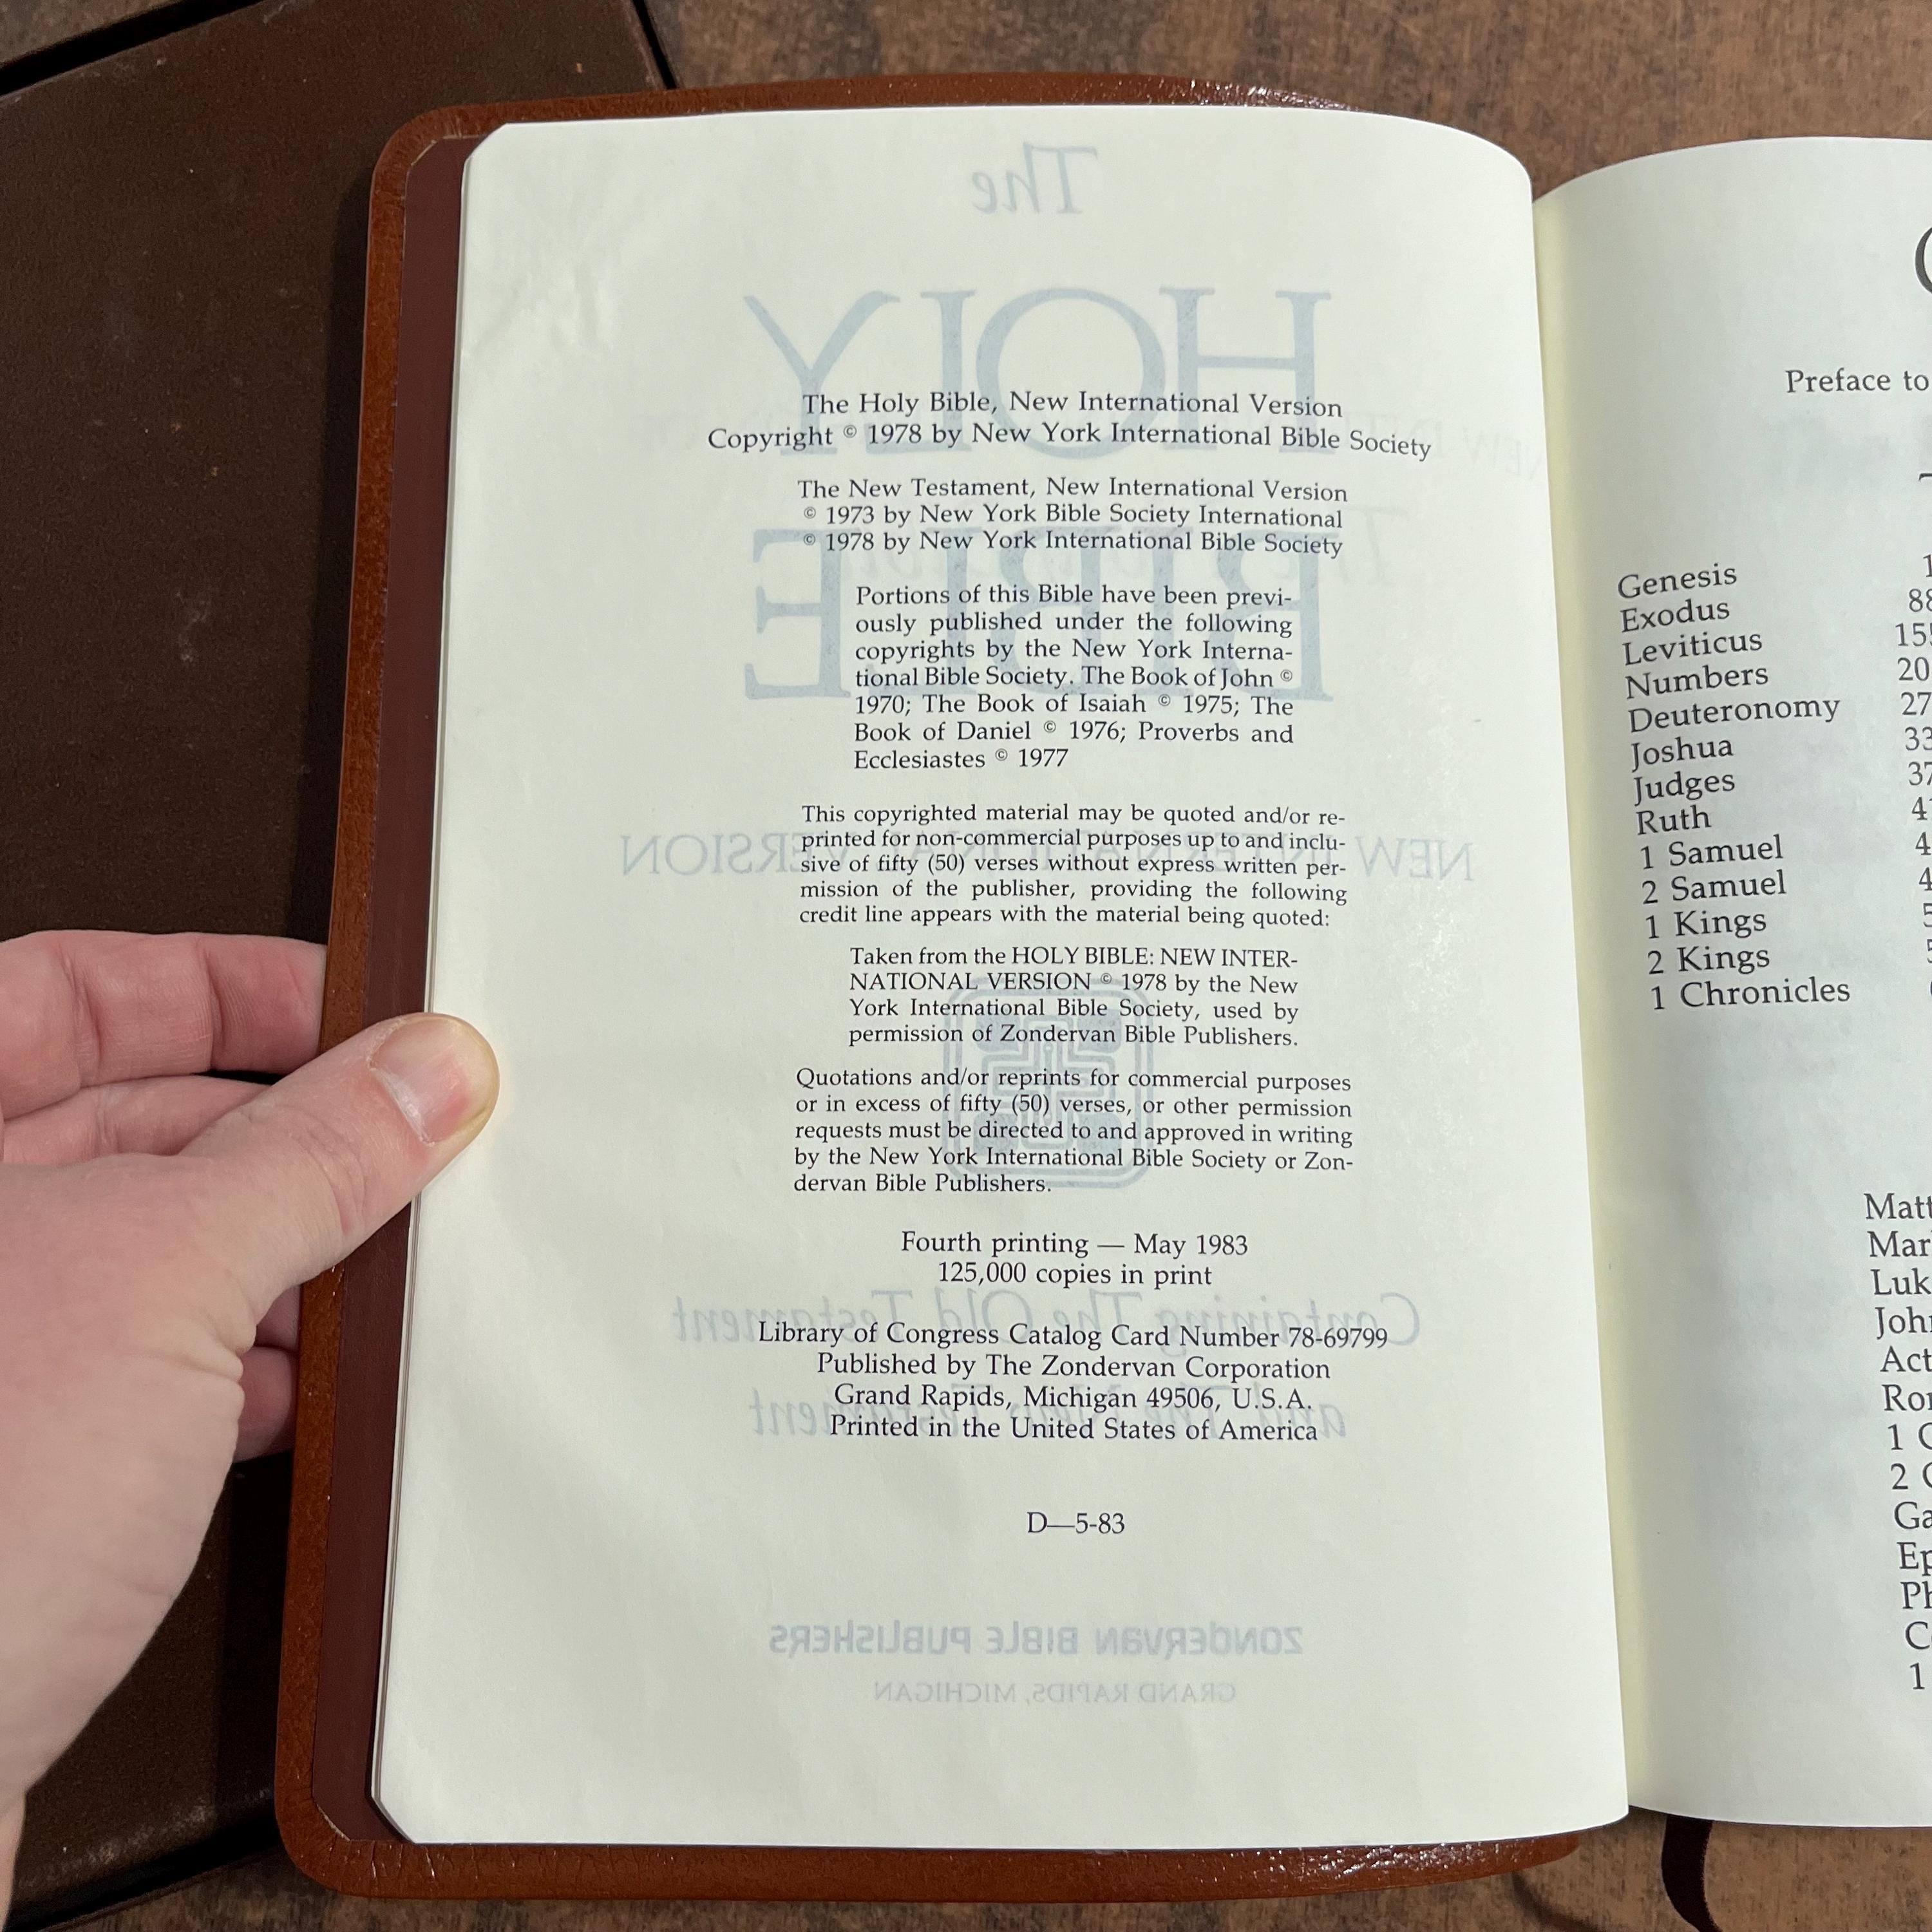 The Holy Bible, New International Version
Copyright © 1978 by New York International Bible Society
The New Testament, New International Version
© 1973 by New York Bible Society International
© 1978 by New York International Bible Society
Portions of this Bible have been previ-
ously published under the following
copyrights by the New York Interna-
tional Bible Society. The Book of John ©
1970; The Book of Isaiah © 1975; The
Book of Daniel © 1976; Proverbs and
Ecclesiastes © 1977
This copyrighted material may be quoted and/or re-
printed for non-commercial purposes up to and inclu-
sive of fifty (50) verses without express written per-
mission of the publisher, providing the following
credit line appears with the material being quoted:
Taken from the HOLY BIBLE: NEW INTER-
NATIONAL VERSION © 1978 by the New
York International Bible Society, used by
permission of Zondervan Bible Publishers.
Quotations and/or reprints for commercial purposes
or in excess of fifty (50) verses, or other permission
requests must be directed to and approved in writing
by the New York International Bible Society or Zon-
dervan Bible Publishers.
Fourth printing — May 1983
125,000 copies in print
Library of Congress Catalog Card Number 78-69799
Published by The Zondervan Corporation
Grand Rapids, Michigan 49506, U.S.A.
Printed in the United States of America
D—5-83
The
HOLY
BIBLE
NEW INTERNATIONAL VERSION
Containing The Old Testament
and The New Testament
ZONDERVAN BIBLE PUBLISHERS
GRAND RAPIDS, MICHIGAN
Preface to
Genesis
Exodus
Leviticus
Numbers
Deuteronomy
Joshua
Judges
Ruth
1 Samuel
2 Samuel
1 Kings
2 Kings
1 Chronicles